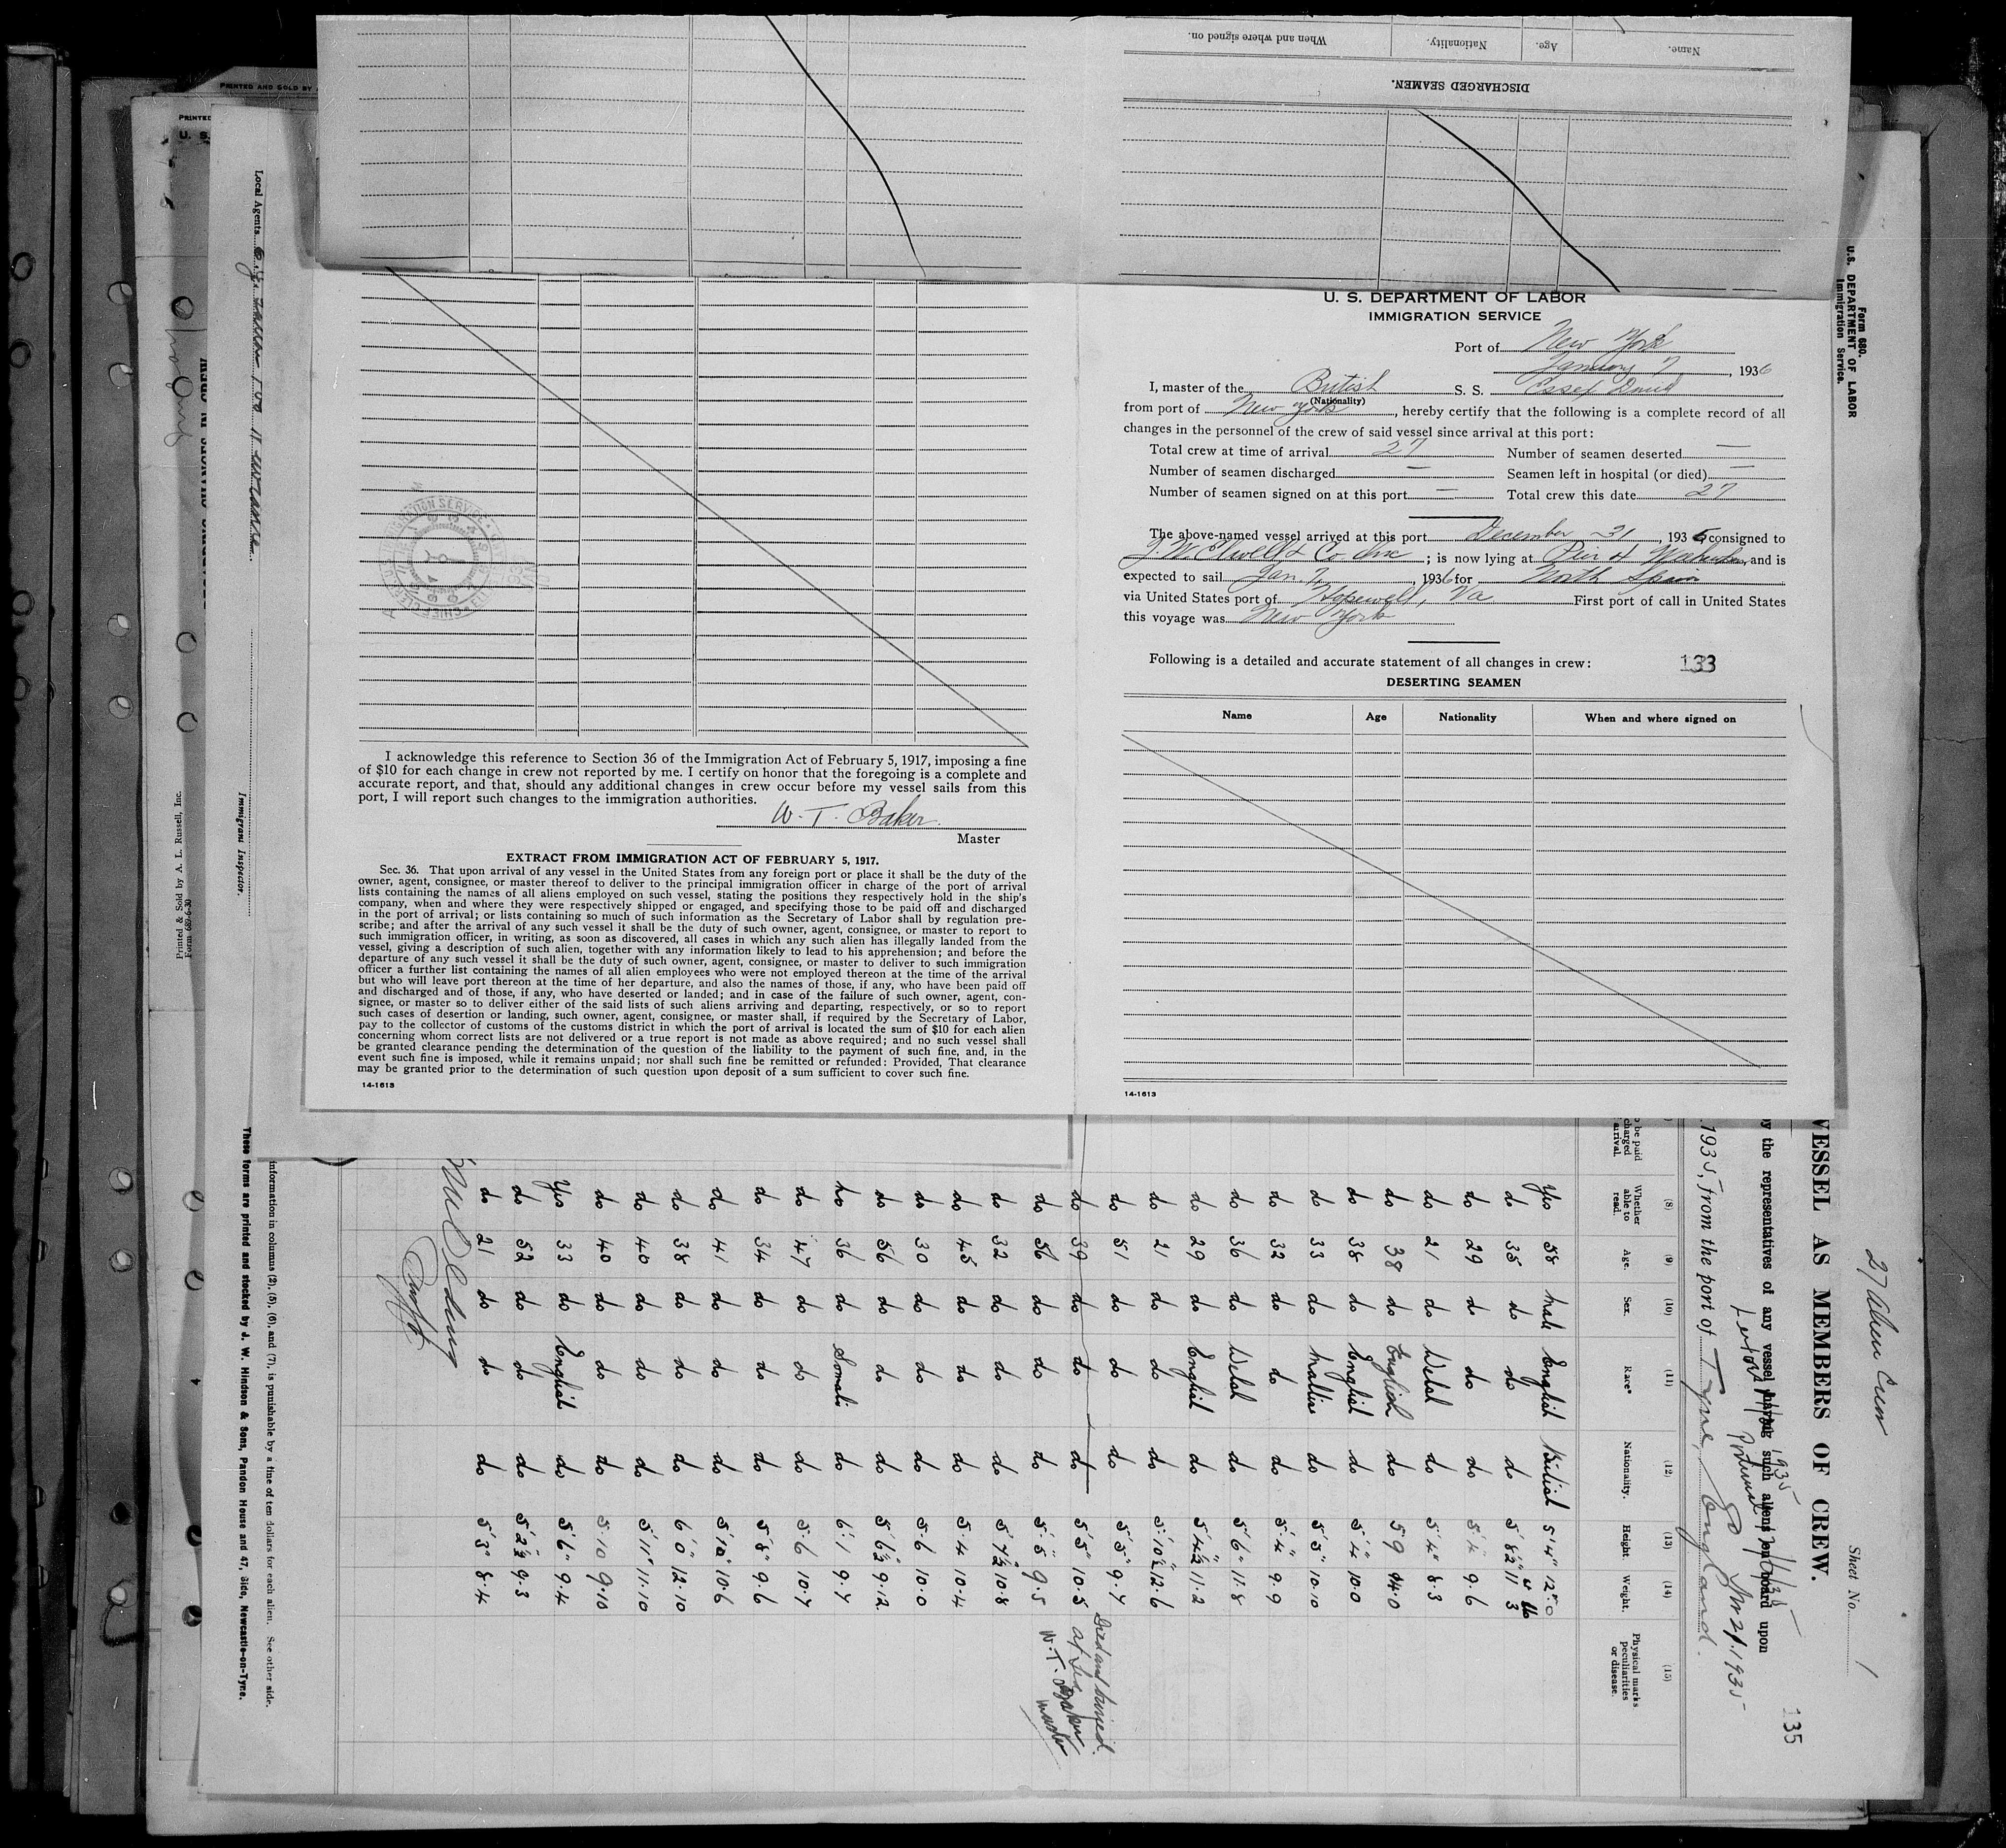 When and where signed on.
Nationality.
Age.
Name.
DISCHARGED SEAMEN.
U. S. DEPARTMENT OF LABOR
IMMIGRATION SERVICE
Port of New York
January 7, 1936
I, master of the British S. S. Essex
(Nationality)
from port of New York, hereby certify that the following is a complete record of all
changes in the personnel of the crew of said vessel since arrival at this port:
Total crew at time of arrival 27 Number of seamen deserted —
Number of seamen discharged — Seamen left in hospital (or died) —
Number of seamen signed on at this port — Total crew this date 27
The above-named vessel arrived at this port December 31, 1935 consigned to
& Co Inc; is now lying at Pier 4, and is
expected to sail Jan 7, 1936 for North Spain
via United States port of Hopewell, Va First port of call in United States
this voyage was New York
Following is a detailed and accurate statement of all changes in crew: 133
DESERTING SEAMEN
Name Age Nationality When and where signed on
14-1613
I acknowledge this reference to Section 36 of the Immigration Act of February 5, 1917, imposing a fine
of $10 for each change in crew not reported by me. I certify on honor that the foregoing is a complete and
accurate report, and that, should any additional changes in crew occur before my vessel sails from this
port, I will report such changes to the immigration authorities.
W. T. Baker.
Master
EXTRACT FROM IMMIGRATION ACT OF FEBRUARY 5, 1917.
Sec. 36. That upon arrival of any vessel in the United States from any foreign port or place it shall be the duty of the
owner, agent, consignee, or master thereof to deliver to the principal immigration officer in charge of the port of arrival
lists containing the names of all aliens employed on such vessel, stating the positions they respectively hold in the ship's
company, when and where they were respectively shipped or engaged, and specifying those to be paid off and discharged
in the port of arrival; or lists containing so much of such information as the Secretary of Labor shall by regulation pre-
scribe; and after the arrival of any such vessel it shall be the duty of such owner, agent, consignee, or master to report to
such immigration officer, in writing, as soon as discovered, all cases in which any such alien has illegally landed from the
vessel, giving a description of such alien, together with any information likely to lead to his apprehension; and before the
departure of any such vessel it shall be the duty of such owner, agent, consignee, or master to deliver to such immigration
officer a further list containing the names of all alien employees who were not employed thereon at the time of the arrival
but who will leave port thereon at the time of her departure, and also the names of those, if any, who have been paid off
and discharged and of those, if any, who have deserted or landed; and in case of the failure of such owner, agent, con-
signee, or master so to deliver either of the said lists of such aliens arriving and departing, respectively, or so to report
such cases of desertion or landing, such owner, agent, consignee, or master shall, if required by the Secretary of Labor,
pay to the collector of customs of the customs district in which the port of arrival is located the sum of $10 for each alien
concerning whom correct lists are not delivered or a true report is not made as above required; and no such vessel shall
be granted clearance pending the determination of the question of the liability to the payment of such fine, and, in the
event such fine is imposed, while it remains unpaid; nor shall such fine be remitted or refunded: Provided, That clearance
may be granted prior to the determination of such question upon deposit of a sum sufficient to cover such fine.
14-1613
Form 680.
U.S. DEPARTMENT OF LABOR
Immigration Service.
27 Alien Crew
Sheet No. 1
135
VESSEL AS MEMBERS OF CREW.
by the representatives of any vessel having such aliens on board upon
1935, from the port of Tyne, England.
(8) (9) (10) (11) (12) (13) (14) (15)
Whether able to read. Age. Sex. Race* Nationality. Height. Weight. Physical marks peculiarities or disease.
Yes 58 male English British 5'4" 12.0
do 35 do do do 5'8½ 11 3
do 29 do do do 5.4 9.6
do 21 do Welsh do 5'4" 8.3
do 38 do English do 5 9
do 38 do English do 5.4 10.0
do 33 do do 5'5" 10.10
do 32 do do do 5.4" 9.9
do 36 do Welsh do 5'6" 11.8
do 29 do English do 5'4½ 11.2
do 21 do do do 5.10½ 12.6
do 51 do do do 5'5" 9.7
do 39 do do do 5'5" 10.5 Died and buried at sea W. T. Baker master
do 56 do do do 5.5" 9.5
do 32 do do do 5'7½ 10.8
do 45 do do do 5.4 10.4
do 30 do do do 5.6 10.0
do 56 do do do 5'6½ 9.12
no 36 do Somali do 6'.1 9.7
do 47 do do do 5.6 10.7
do 34 do do do 5'8" 9.6
do 41 do do do 5'10" 10.6
do 38 do do do 6'0" 12.10
do 40 do do do 5'11" 11.10
do 40 do do do 5.10 9.10
Yes 33 do English do 5'6" 9.4
do 52 do do do 5'2½ 9.3
do 21 do do do 5'3" 8.4
information in columns (2), (5), (6), and (7), is punishable by a fine of ten dollars for each alien. See other side.
These forms are printed and stocked by J. W. Hindson & Sons, Pandon House and 47, Side, Newcastle-on-Tyne.
Local Agents
Immigrant Inspector.
Printed & Sold by A. L. Russell, Inc.
Form 689-6-30
PRINTED AND SOLD BY
PRINTED
U. S.
CHANGES IN CREW